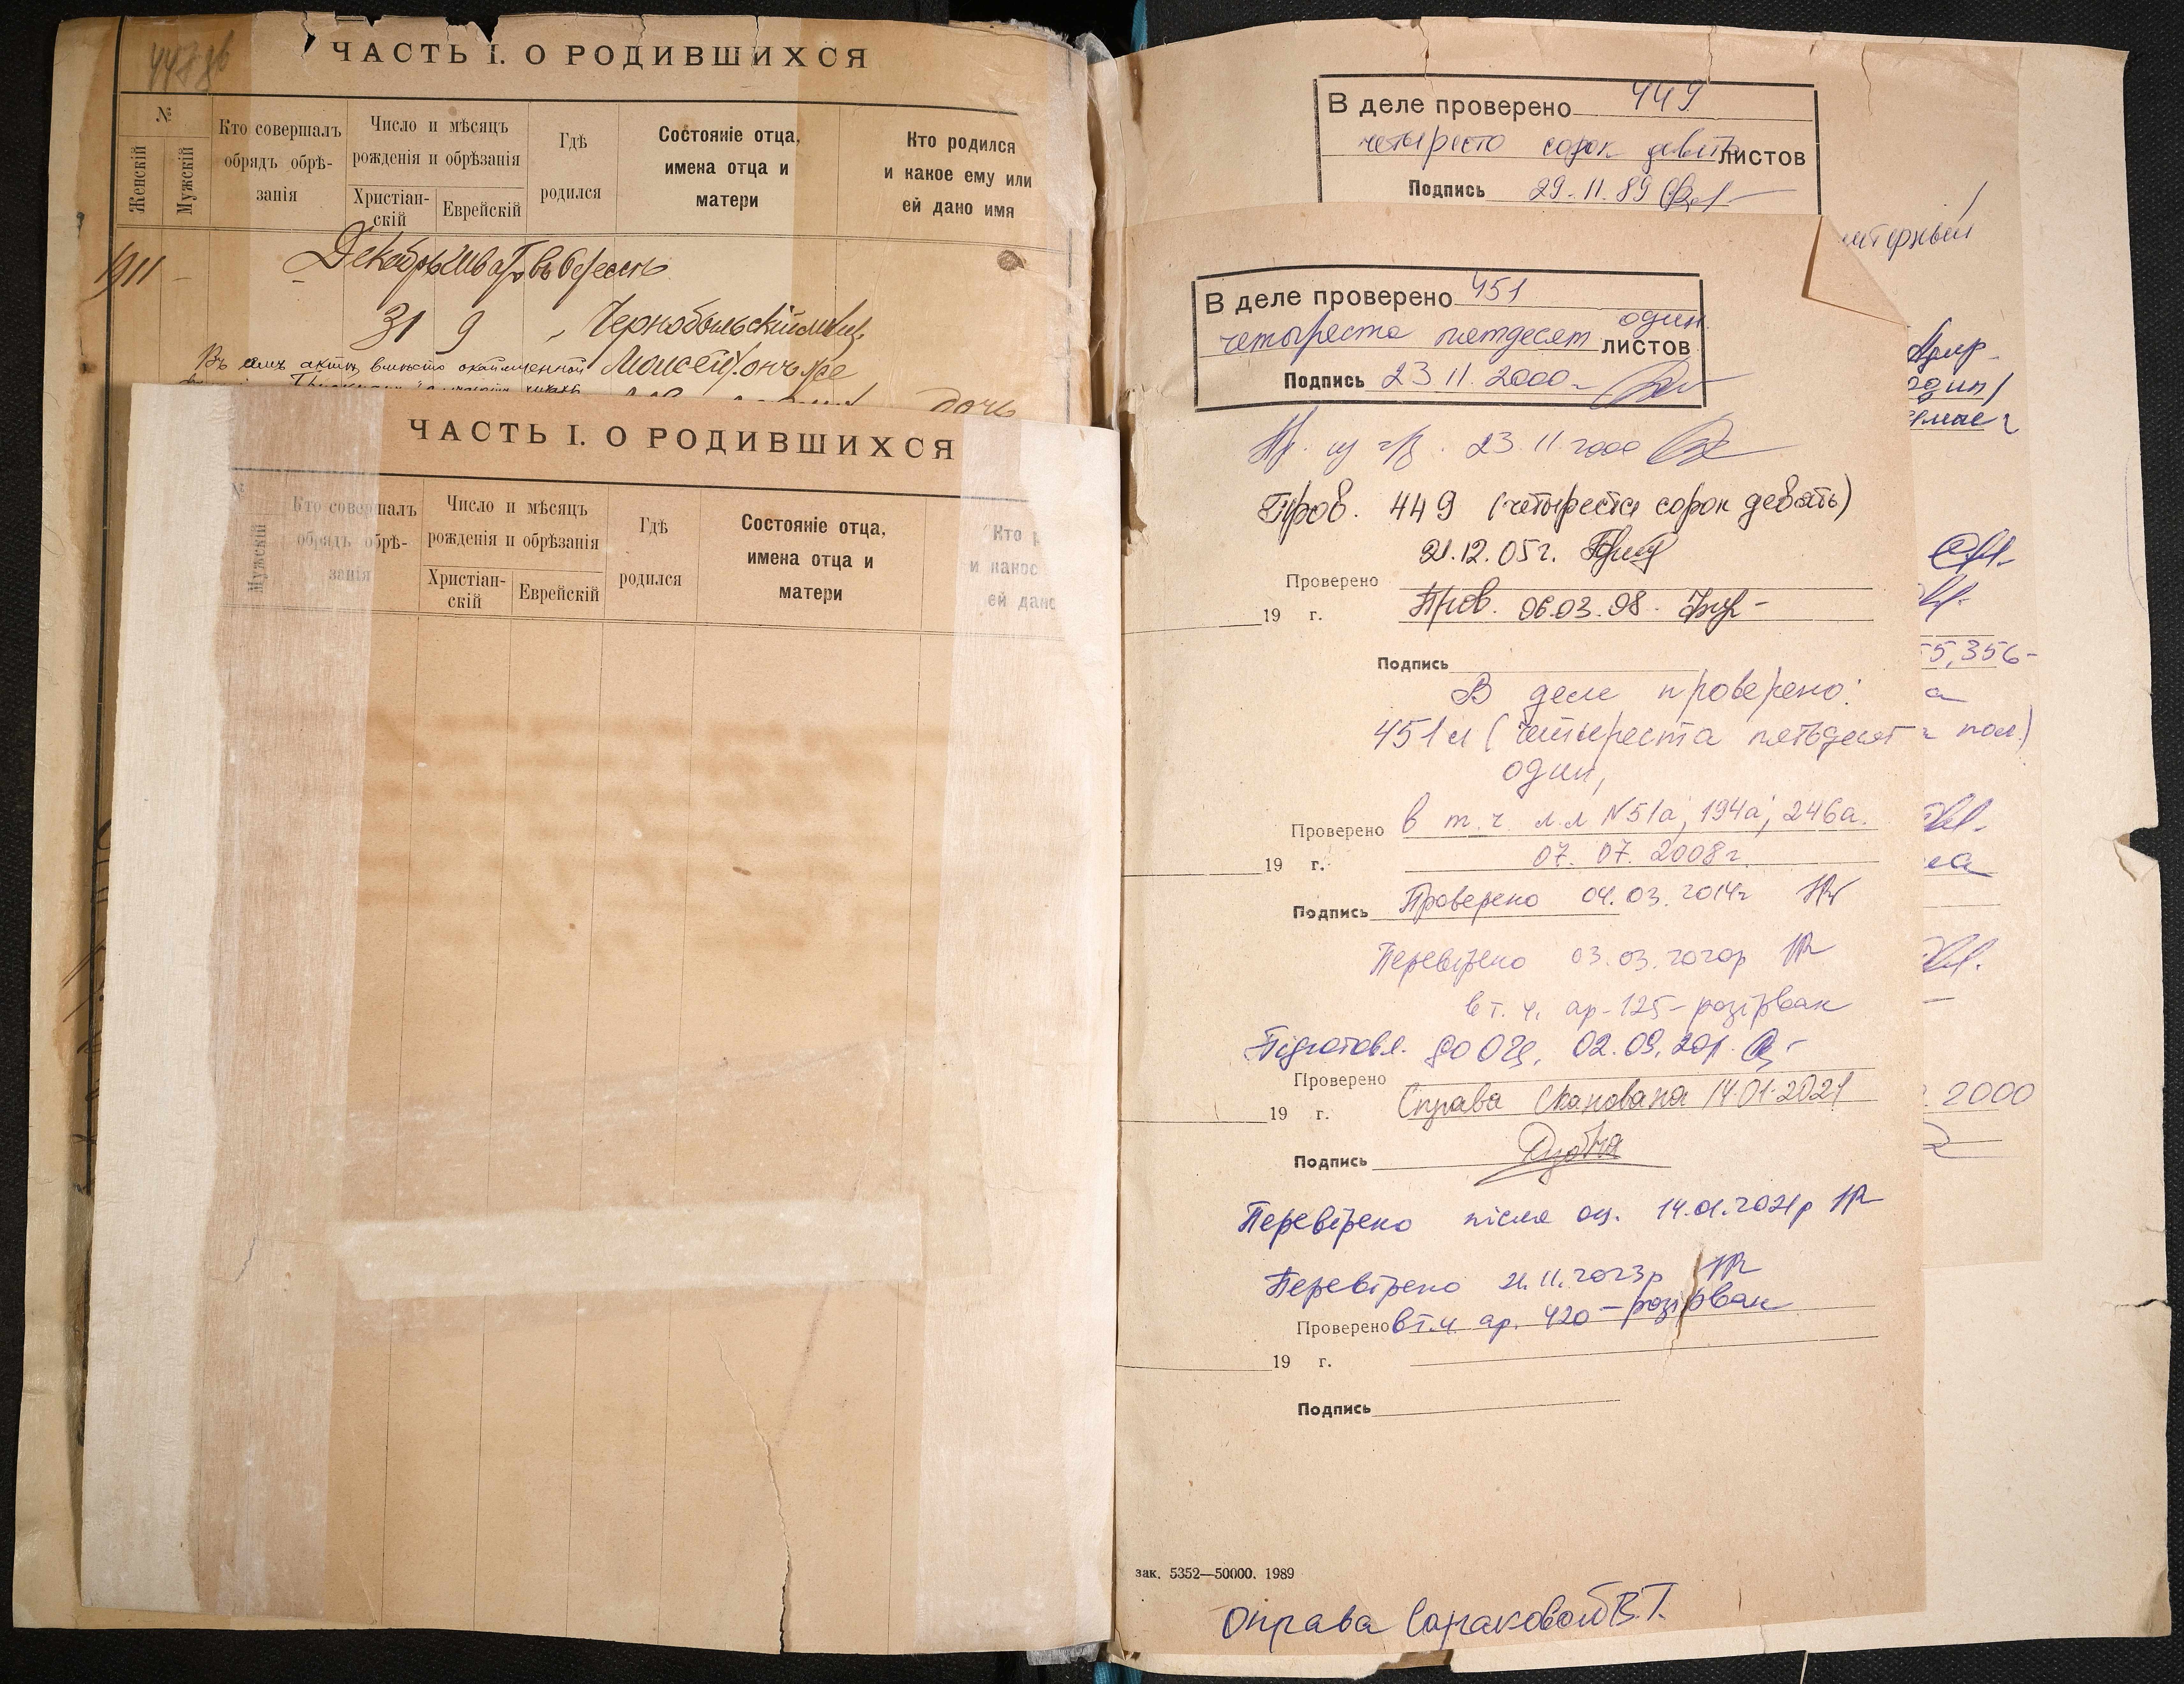 ЧАСТЬ I. О РОДИВШИХСЯ
№
Женскій
Мужскій
Кто совершалъ
обрядъ обрѣ-
занія
Число и мѣсяцъ
рожденія и обрѣзанія
Христіан-
скій
Еврейскій
Гдѣ
родился
Состояніе отца,
имена отца и
матери
Кто родился
и какое ему или
ей дано имя
1911 -
Декабрь
31 9
дочь
ЧАСТЬ I. О РОДИВШИХСЯ
№
Мужскій
Кто совершалъ
обрядъ обрѣ-
занія
Число и мѣсяцъ
рожденія и обрѣзанія
Христіан-
скій
Еврейскій
Гдѣ
родился
Состояніе отца,
имена отца и
матери
Кто р
и какое
ей дано
В деле проверено 449
четыресто сорок девять листов
Подпись 29.11.89
В деле проверено 451
четыреста пятдесят один листов
Подпись 23 11. 2000
23.11.2000
Пров. 449 (четыреста сорок девять)
21.12.05 г.
Проверено
19 г.
Пров. 06.03.98.
Подпись
В деле проверено:
451 л (четыреста пятьдесят
один,
Проверено в т. ч. л.л N51а; 194а; 246а.
19 г. 07. 07. 2008 г.
Подпись Проверено 04.03.2014г
Перевірено 03.03.2020р
в т. ч. ар. 125 - розірван
Підготовл. до ОЦ. 02.09.20р.
Проверено
19 г. Справа сканована 14.01.2021
Подпись
Перевірено після оц. 14.01.2021р
Перевірено 21.11.2023р
Проверено в т.ч. ар. 420 - розірван
19 г.
Подпись
55,356-
2000
зак. 5352—50000. 1989
оправа В.Т.